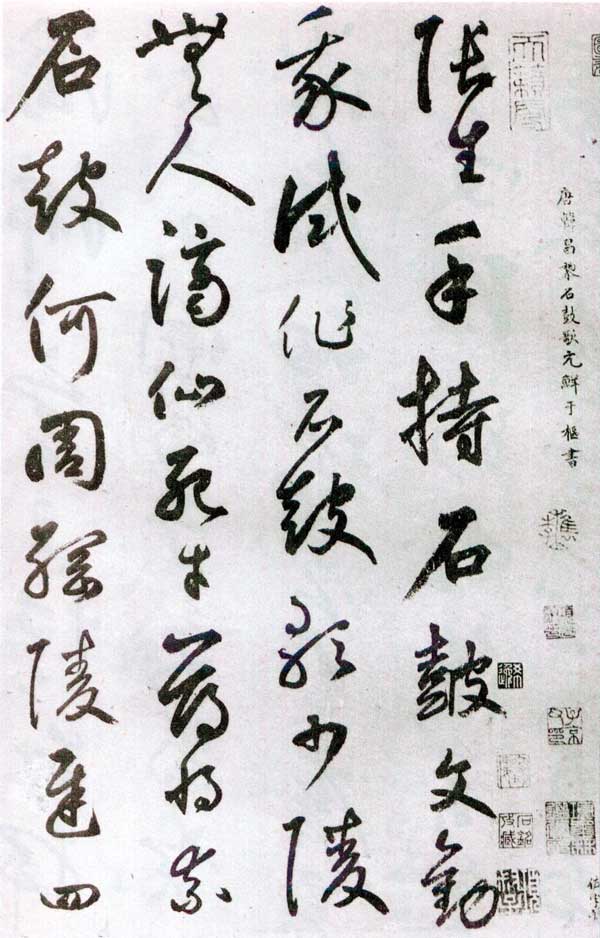 唐韓昌黎石鼓歌元鮮于樞書
張生手持石鼓文勸
我試作石鼓歌少陵
無人謫仙死才薄將奈
石鼓何周綱陵遲四
子京父印
石銘收藏